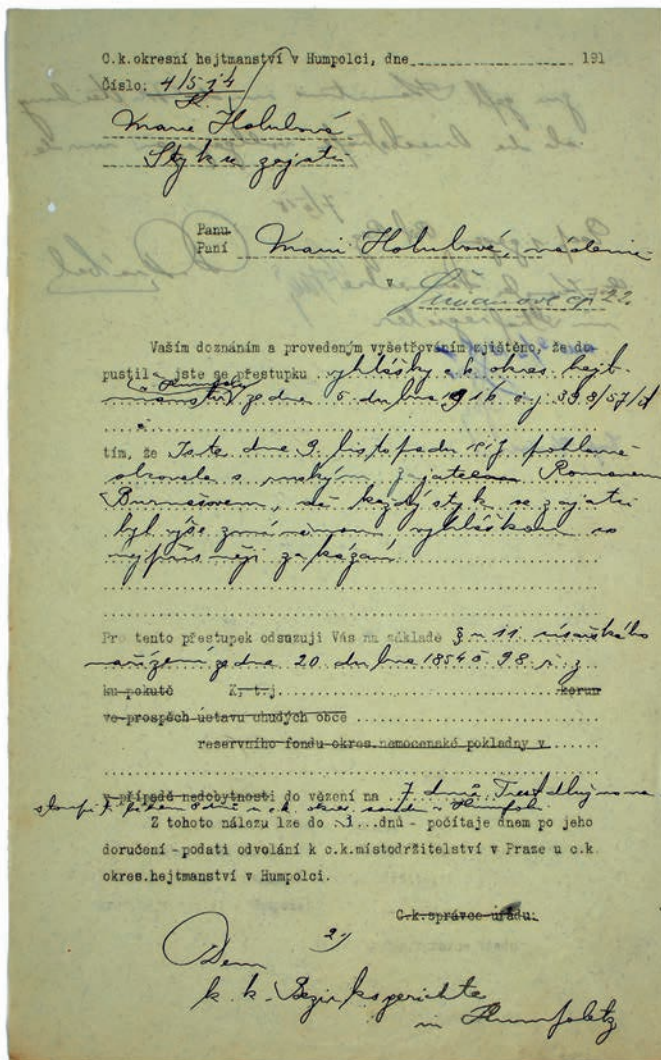 C.k.okresní hejtmanství v Humpolci, dne 191
Číslo: 4/5 j 4
Marie Holubová
Styk se zajatci
Panu
Paní Marii Holubové, nádenic
v
čp 22.
Vaším doznáním a provedeným vyšetřováním zjištěno, že do
pustila jste se přestupku vyhlášky c.k. okres. hejt-
v Humpolci
manství ze dne 5 dubna 1916 čj 398/57/
tím, že Jste dne 9. listopadu 1917
s ruským zajatcem Romanem
, ač každý styk se zajatci
byl výše zmíněnou vyhláškou co
nejpřísněji zakázán
Pro tento přestupek odsuzuji Vás na základě § 11 císařského
nařízení ze dne 20. dubna 1854 č 98 ř. z
ku pokutě K, t.j. korun
ve prospěch ústavu chudých obce
reservního fondu okres.nemocenské pokladny v
v případě nedobytnosti do vězení na 7 dnů. Trest dlužno na
během 8 dnů u c.k. okres. soudu v Humpolci.
Z tohoto nálezu lze do dnů - počítaje dnem po jeho
doručení - podati odvolání k c.k.místodržitelství v Praze u c.k.
okres.hejtmanství v Humpolci.
C.k.správce úřadu:
2./
Dem
k. k. Bezirksgerichte
in Humpoletz